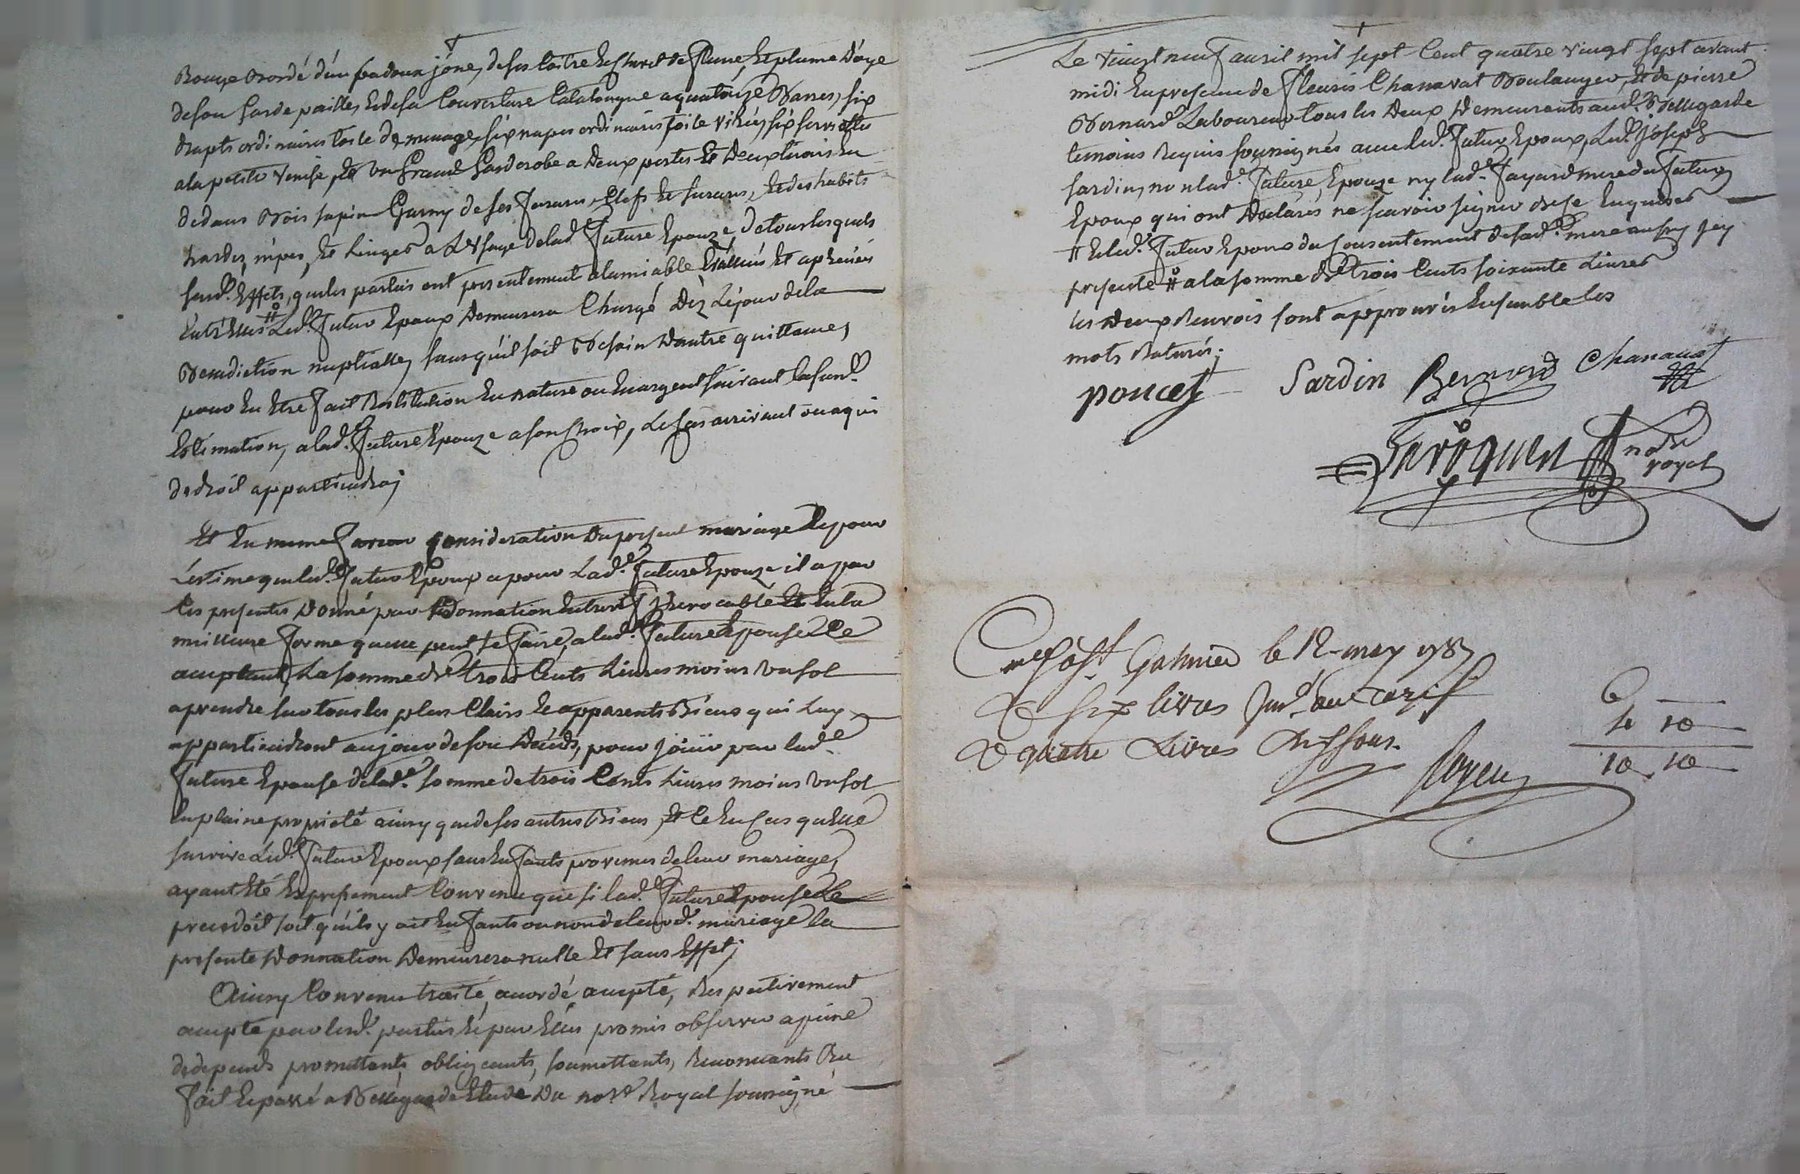 Rouge bordé d'un padoux jone, deson Coitre Eschevet de plume, Et plume d'oye
deson Garde pailles, Et desa Couverture Catalongne a quatorze Barres, six
draps ordinaires toile de menage, six napes ordinaires toile , six serviettes
a la petite Venise, Et un Grand Garderobe a Deux portes Et Deux tiroirs En
dedans Bois sapin Garny de ses ferrures, clefs Et serures, Et des habits
hardes, nipes, Et Linges a L'usage de lad.e future Epouze, de tous lesquels
susd.s Effets, que les parties ont presentement alamiable Evallués Et apreciés
Entr'Elles # Led.t futur Epoux Demeurera Chargé Dez Le jour de la
Benediction nuptialle, sans qu'il soit Besoin Dautre quittance,
pour En Etre fait Restitution En nature ou En argent suivant lasusd.e
Estimation, a lad.e future Epouze a son choix, Le Cas arrivant ou a qui
de droit appartiendra;
Et En meme faveur Consideration Du present mariage Et pour
L'estime que led.t futur Epoux a pour Lad.e future Epouze il a par
Ces presentes Donné par Donnation Entrevifs Irrevocable Et En la
meilleure forme que se peut Se faire, a lad.e future Epouse Ce
acceptant, La somme de trois Cents Livres moins un sol
a prendre sur tous les plus Clairs Et apparents Biens qui Luy
appartiendront au jour de son Deceds, pour joüir par lad.e
future Epouse de lad.e somme de trois Cents Livres moins un sol
En plaine proprieté ainsy que de ses autres Biens, Et ce En Cas qu'Elle
survive Led.t futur Epoux sans Enfants provenus de leur mariage,
ayant Eté Expressement Convenu que si lad.e future Epouse Le
precedoit soit qu'il y ait Enfants ou non de leurd.t mariage la
presente Donnation Demeurera nulle Et sans Effet;
Ainsy Convenu traité, acordé, accepté, Respectivement
accepté par lesd.s parties Et par Elles promis observer a peine
de depends promettants, obligeants, soumettants, Renonceants &a
fait Et passé a Bellegarde Etude Du no.re Royal soussigné
Le vingt neuf avril mil sept Cent quatre vingt sept avant
midi En presence de fleuris Chanavat Boulanger, Et de pierre
Bernard Laboureur tous les Deux Demeurants aud.t Bellegarde
temoins Requis soussignés avec led.t futur Epoux, Led.t joseph
Sardin, non lad.e future Epouze ny lad.e fayard mere du futur
Epoux qui ont Déclarés ne scavoir signer de ce Enquises
# Et led.t futur Epoux du Consentement de sad.e mere aussy icy
presente # a la somme de trois Cents soixante Livres
les Deux Renvois sont approuvés Ensemble les
mots Raturés;
poncet Sardin Bernard Chanavat
no.re
royal
a St Galmier le 12 may 1787
R six livres au tarif
R quatre Livres dix sous.
6
4 10
10 10